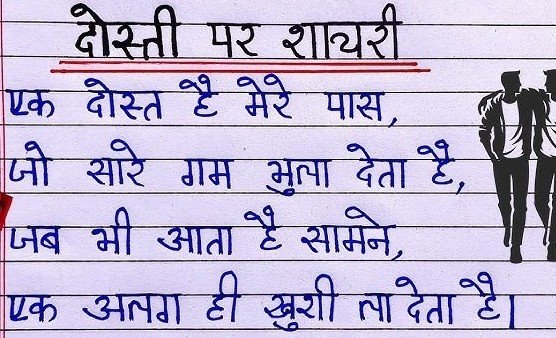 दोस्ती पर शायरी
एक दोस्त है मेरे पास,
जो सारे गम भुला देता है,
जब भी आता है सामने,
एक अलग ही खुशी ला देता है।